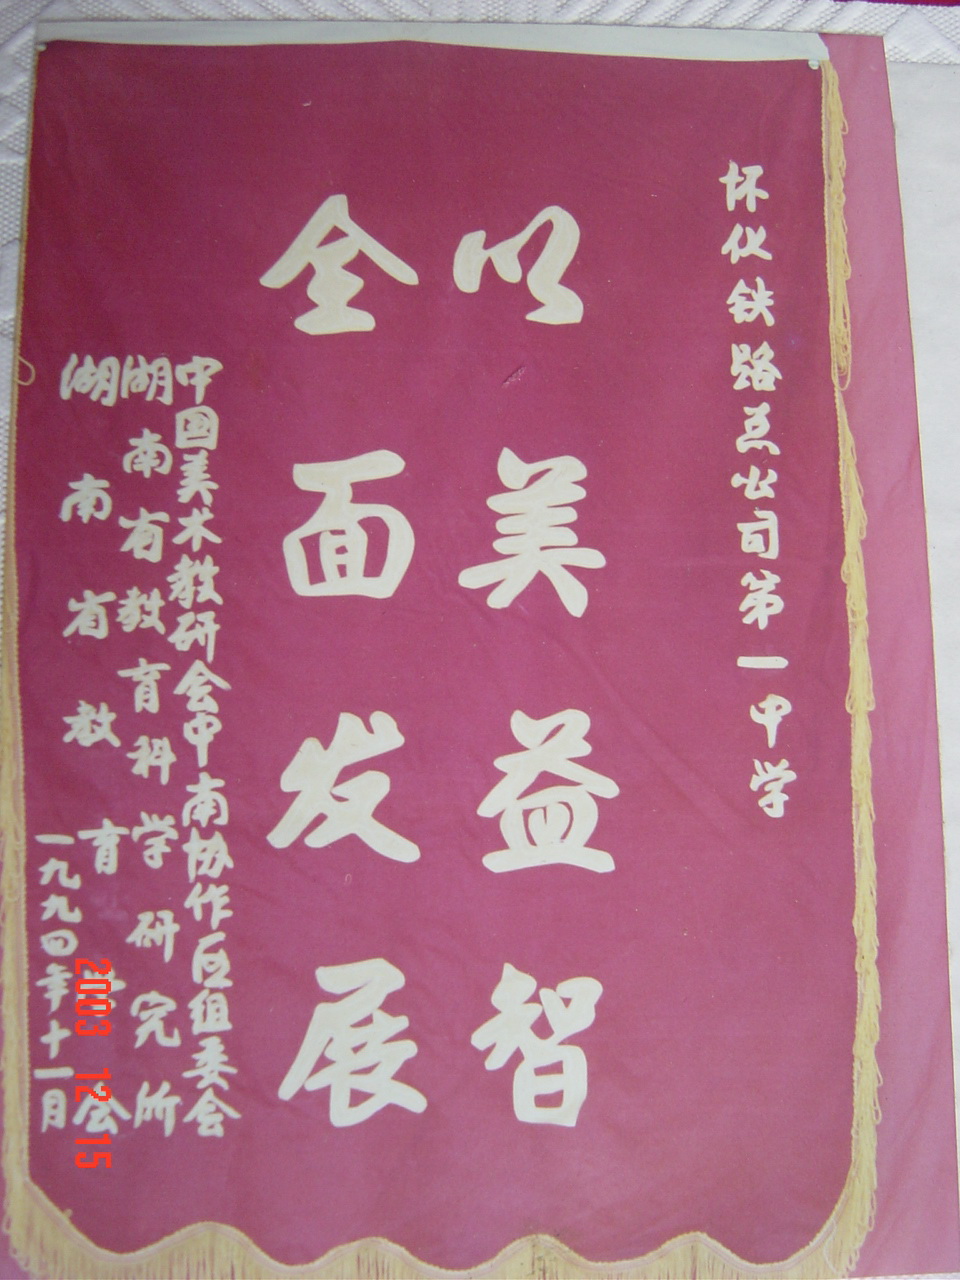 怀化铁路总公司第一中学
以美益智
全面发展
中国美术教研会中南协作区组委会
湖南省教育科学研究所
湖南省教育学会
一九九四年十一月
2003 12 15